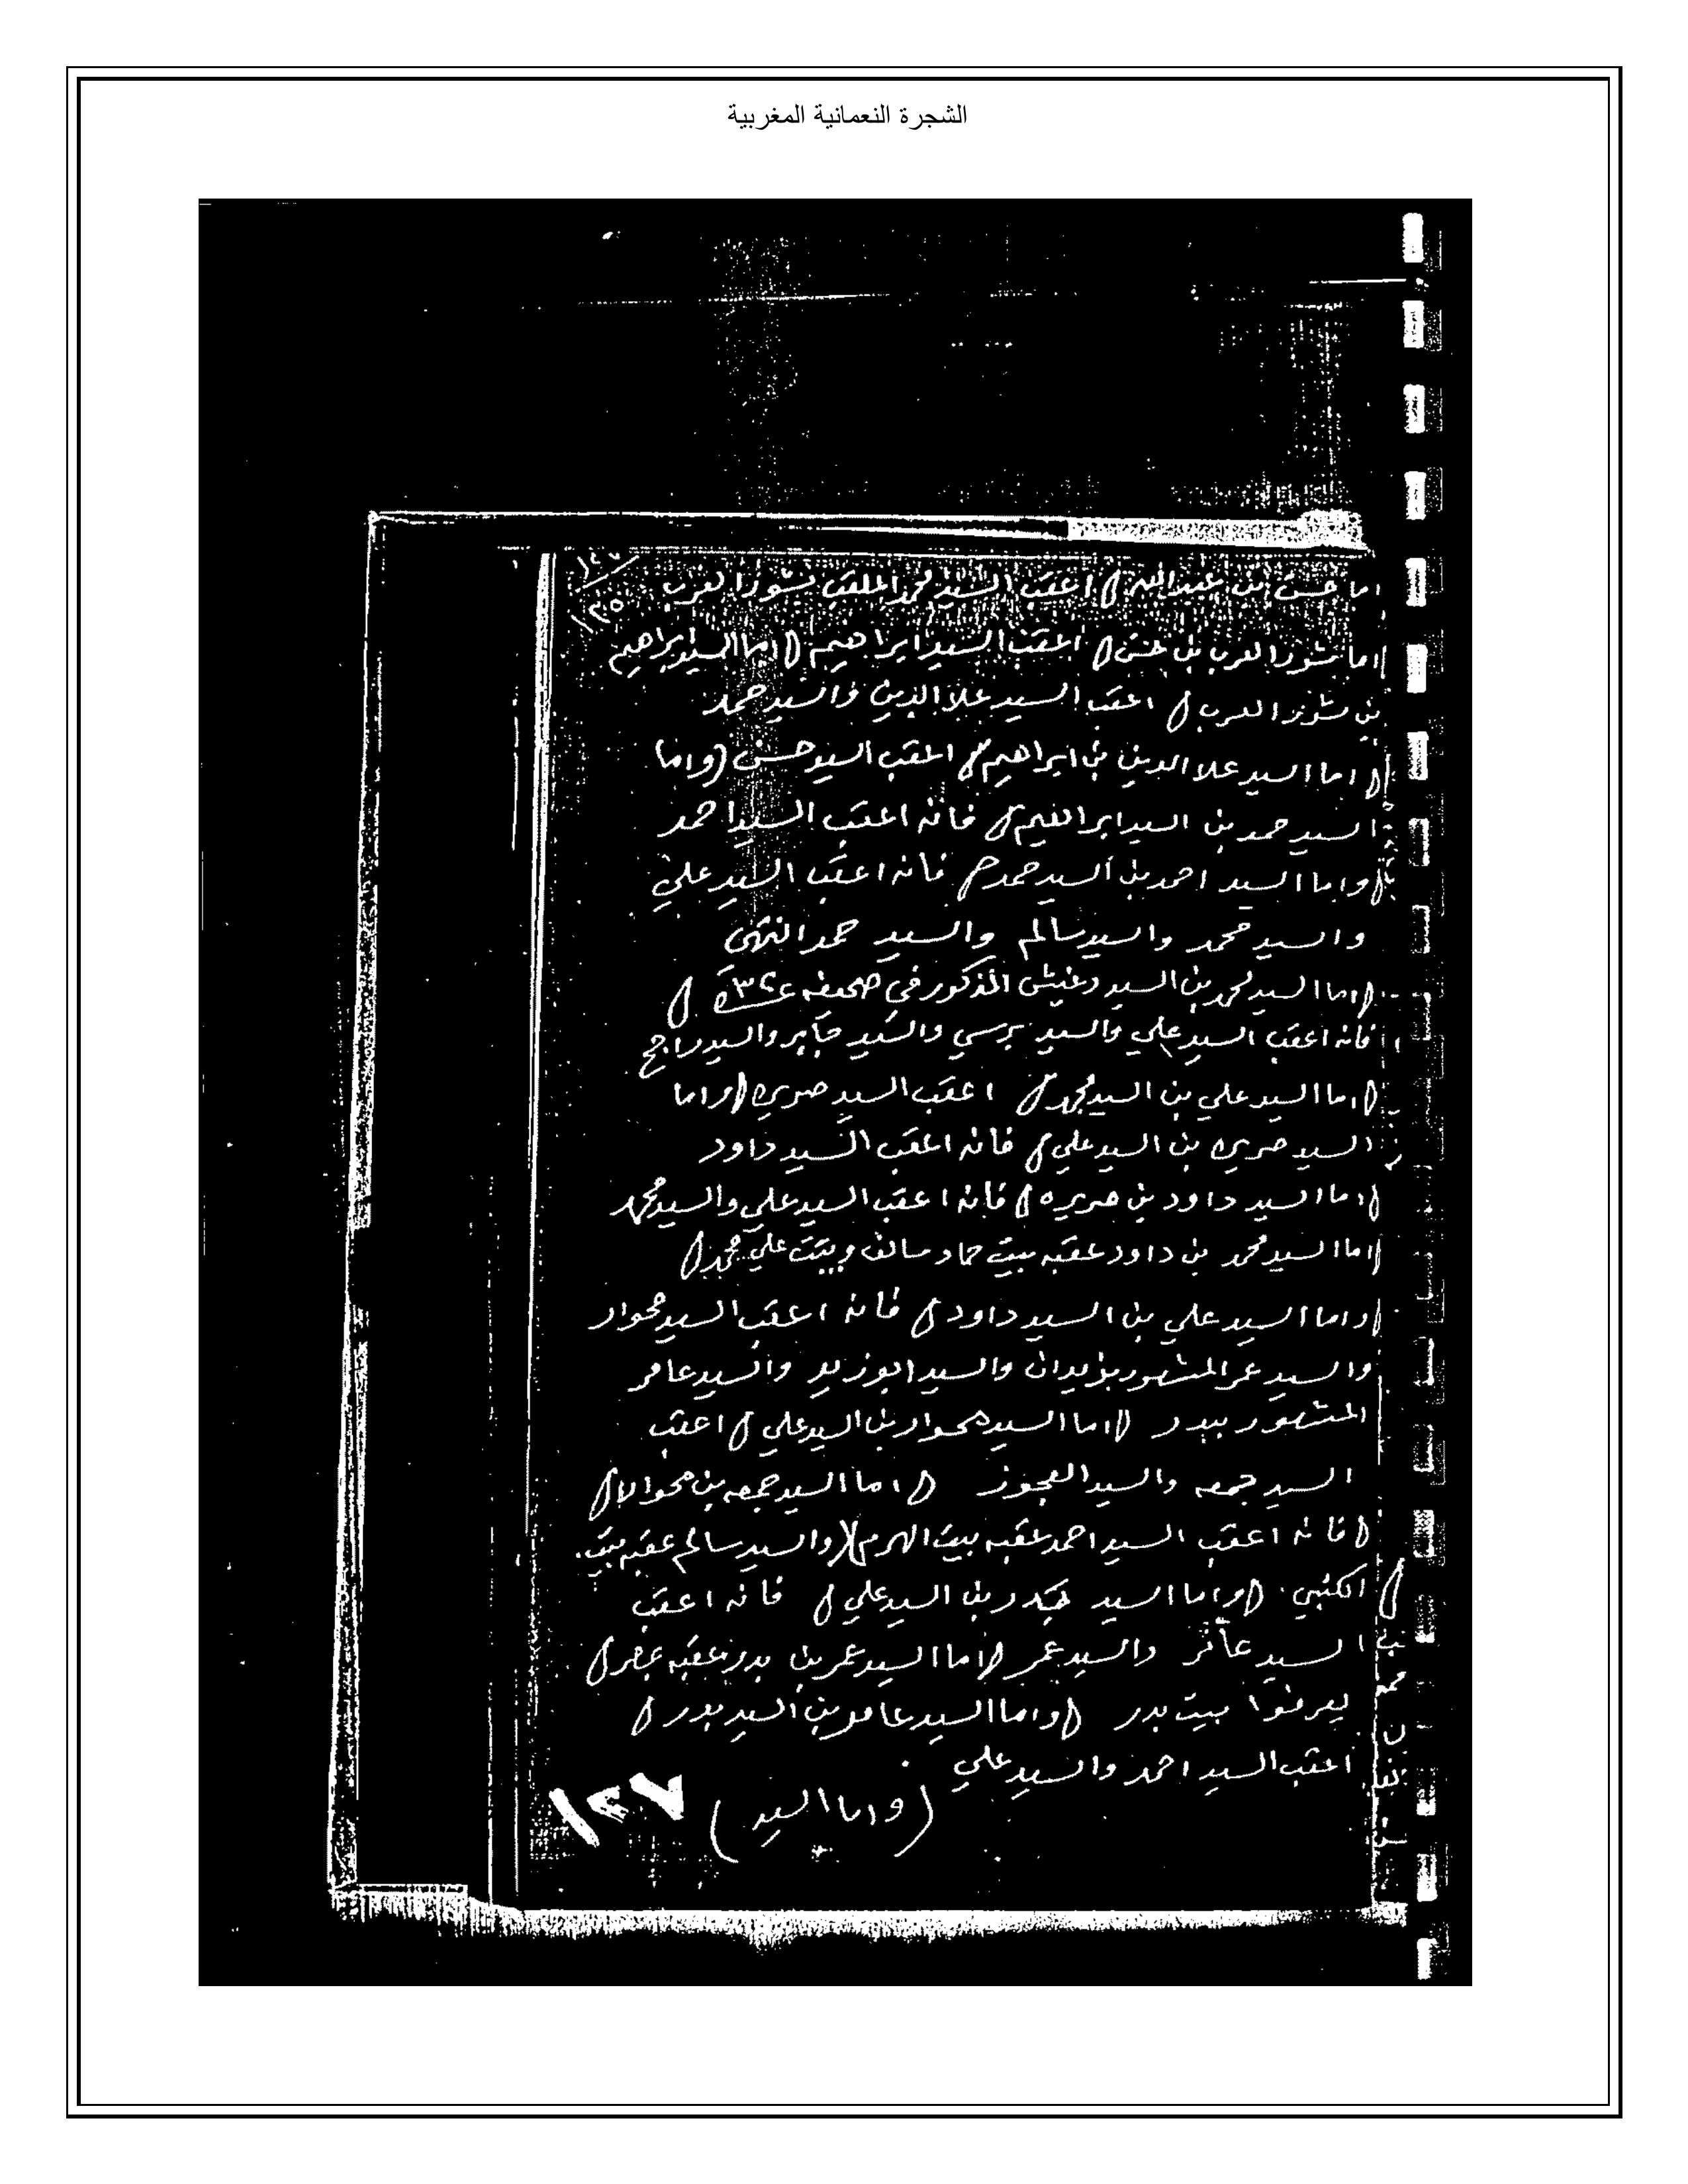 الشجرة النعمانية المغربية
اما حسن بن عبدالله اعقب السيد محمد الملقب بشور العرب
اما شور العرب بن حسن اعقب السيد ابراهيم اما السيد ابراهيم
بن شور العرب اعقب السيد علا الدين والسيد حمد
اما السيد علا الدين بن ابراهيم اعقب السيد حسن (واما
السيد حمد بن السيد ابراهيم فانه اعقب السيد احمد
واما السيد احمد بن السيد حمد فانه اعقب السيد علي
والسيد محمد والسيد سالم والسيد حمد انتهى
اما السيد محمد بن السيد دغيش المذكور في صحيفه
فانه اعقب السيد علي والسيد برسي والسيد جابر والسيد راجح
اما السيد علي بن السيد محمد اعقب السيد صريره (واما
السيد صريره بن السيد علي فانه اعقب السيد داود
اما السيد داود بن صريره فانه اعقب السيد علي والسيد محمد
اما السيد محمد بن داود عقبه بيت حماد سالف وبيت علي محمد
واما السيد علي بن السيد داود فانه اعقب السيد محوار
والسيد عمر المشهور بزيدان والسيد ابو زيد والسيد عامر
المشهور ببدر اما السيد محوار بن السيد علي اعقب
السيد جمعه والسيد العجوز اما السيد جمعه بن محوار
فانه اعقب السيد احمد عقبه بيت الهرم (والسيد سالم عقبه بيت
الكتبي (واما السيد بدر بن السيد علي فانه اعقب
السيد عامر والسيد عمر (اما السيد عمر بن بدر عقبه بمصر
يعرفوا ببيت بدر (واما السيد عامر بن السيد بدر
اعقب السيد احمد والسيد علي
(واما السيد)
١٢٧